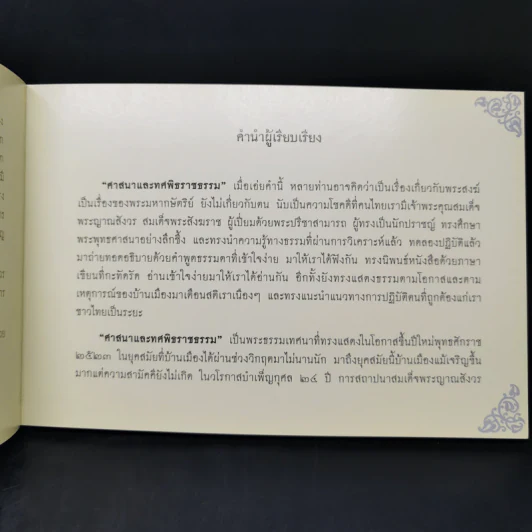 คำนำผู้เรียบเรียง
"ศาสนาและทศพิธราชธรรม" เมื่อเอ่ยคำนี้ หลายท่านอาจคิดว่าเป็นเรื่องเกี่ยวกับพระสงฆ์
เป็นเรื่องของพระมหากษัตริย์ ยังไม่เกี่ยวกับตน นับเป็นความโชคดีที่คนไทยเรามีเจ้าพระคุณสมเด็จ
พระญาณสังวร สมเด็จพระสังฆราช ผู้เปี่ยมด้วยพระปรีชาสามารถ ผู้ทรงเป็นนักปราชญ์ ทรงศึกษา
พระพุทธศาสนาอย่างลึกซึ้ง และทรงนำความรู้ทางธรรมที่ผ่านการวิเคราะห์แล้ว ทดลองปฏิบัติแล้ว
มาถ่ายทอดอธิบายด้วยคำพูดธรรมดาที่เข้าใจง่าย มาให้เราได้ฟังกัน ทรงนิพนธ์หนังสือด้วยภาษา
เขียนที่กะทัดรัด อ่านเข้าใจง่ายมาให้เราได้อ่านกัน อีกทั้งยังทรงแสดงธรรมตามโอกาสและตาม
เหตุการณ์ของบ้านเมืองมาเตือนสติเราเนืองๆ และทรงแนะนำแนวทางการปฏิบัติตนที่ถูกต้องแก่เรา
ชาวไทยเป็นระยะ
"ศาสนาและทศพิธราชธรรม" เป็นพระธรรมเทศนาที่ทรงแสดงในโอกาสขึ้นปีใหม่พุทธศักราช
๒๕๒๓ ในยุคสมัยที่บ้านเมืองได้ผ่านช่วงวิกฤตมาไม่นานนัก มาถึงยุคสมัยนี้บ้านเมืองแม้เจริญขึ้น
มากแต่ความสามัคคียังไม่เกิด ในวโรกาสบำเพ็ญกุศล ๒๔ ปี การสถาปนาสมเด็จพระญาณสังวร